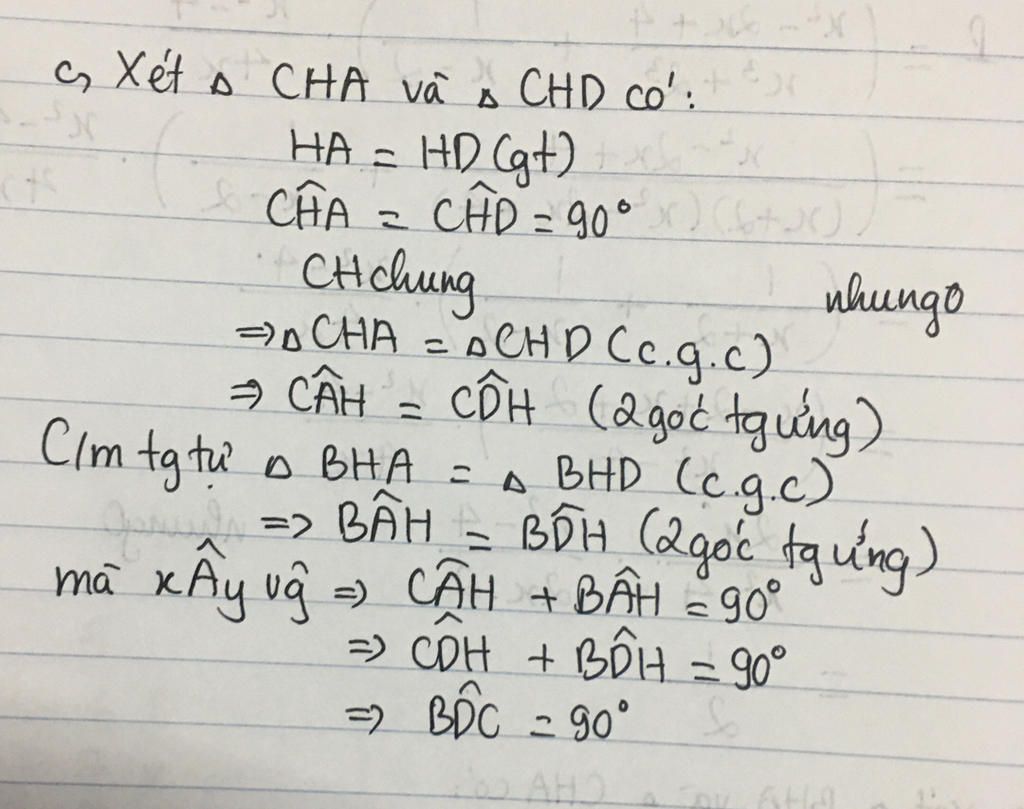 c, Xét △ CHA và △ CHD có:
HA = HD (gt)
CĤA = CĤD = 90°
CH chung
nhung0
⇒ △ CHA = △ CHD (c.g.c)
⇒ CÂH = CD̂H (2 góc tg ứng)
C/m tg tự △ BHA = △ BHD (c.g.c)
=> BÂH = BD̂H (2 góc tg ứng)
mà xÂy vĝ => CÂH + BÂH = 90°
=> CD̂H + BD̂H = 90°
=> BD̂C = 90°